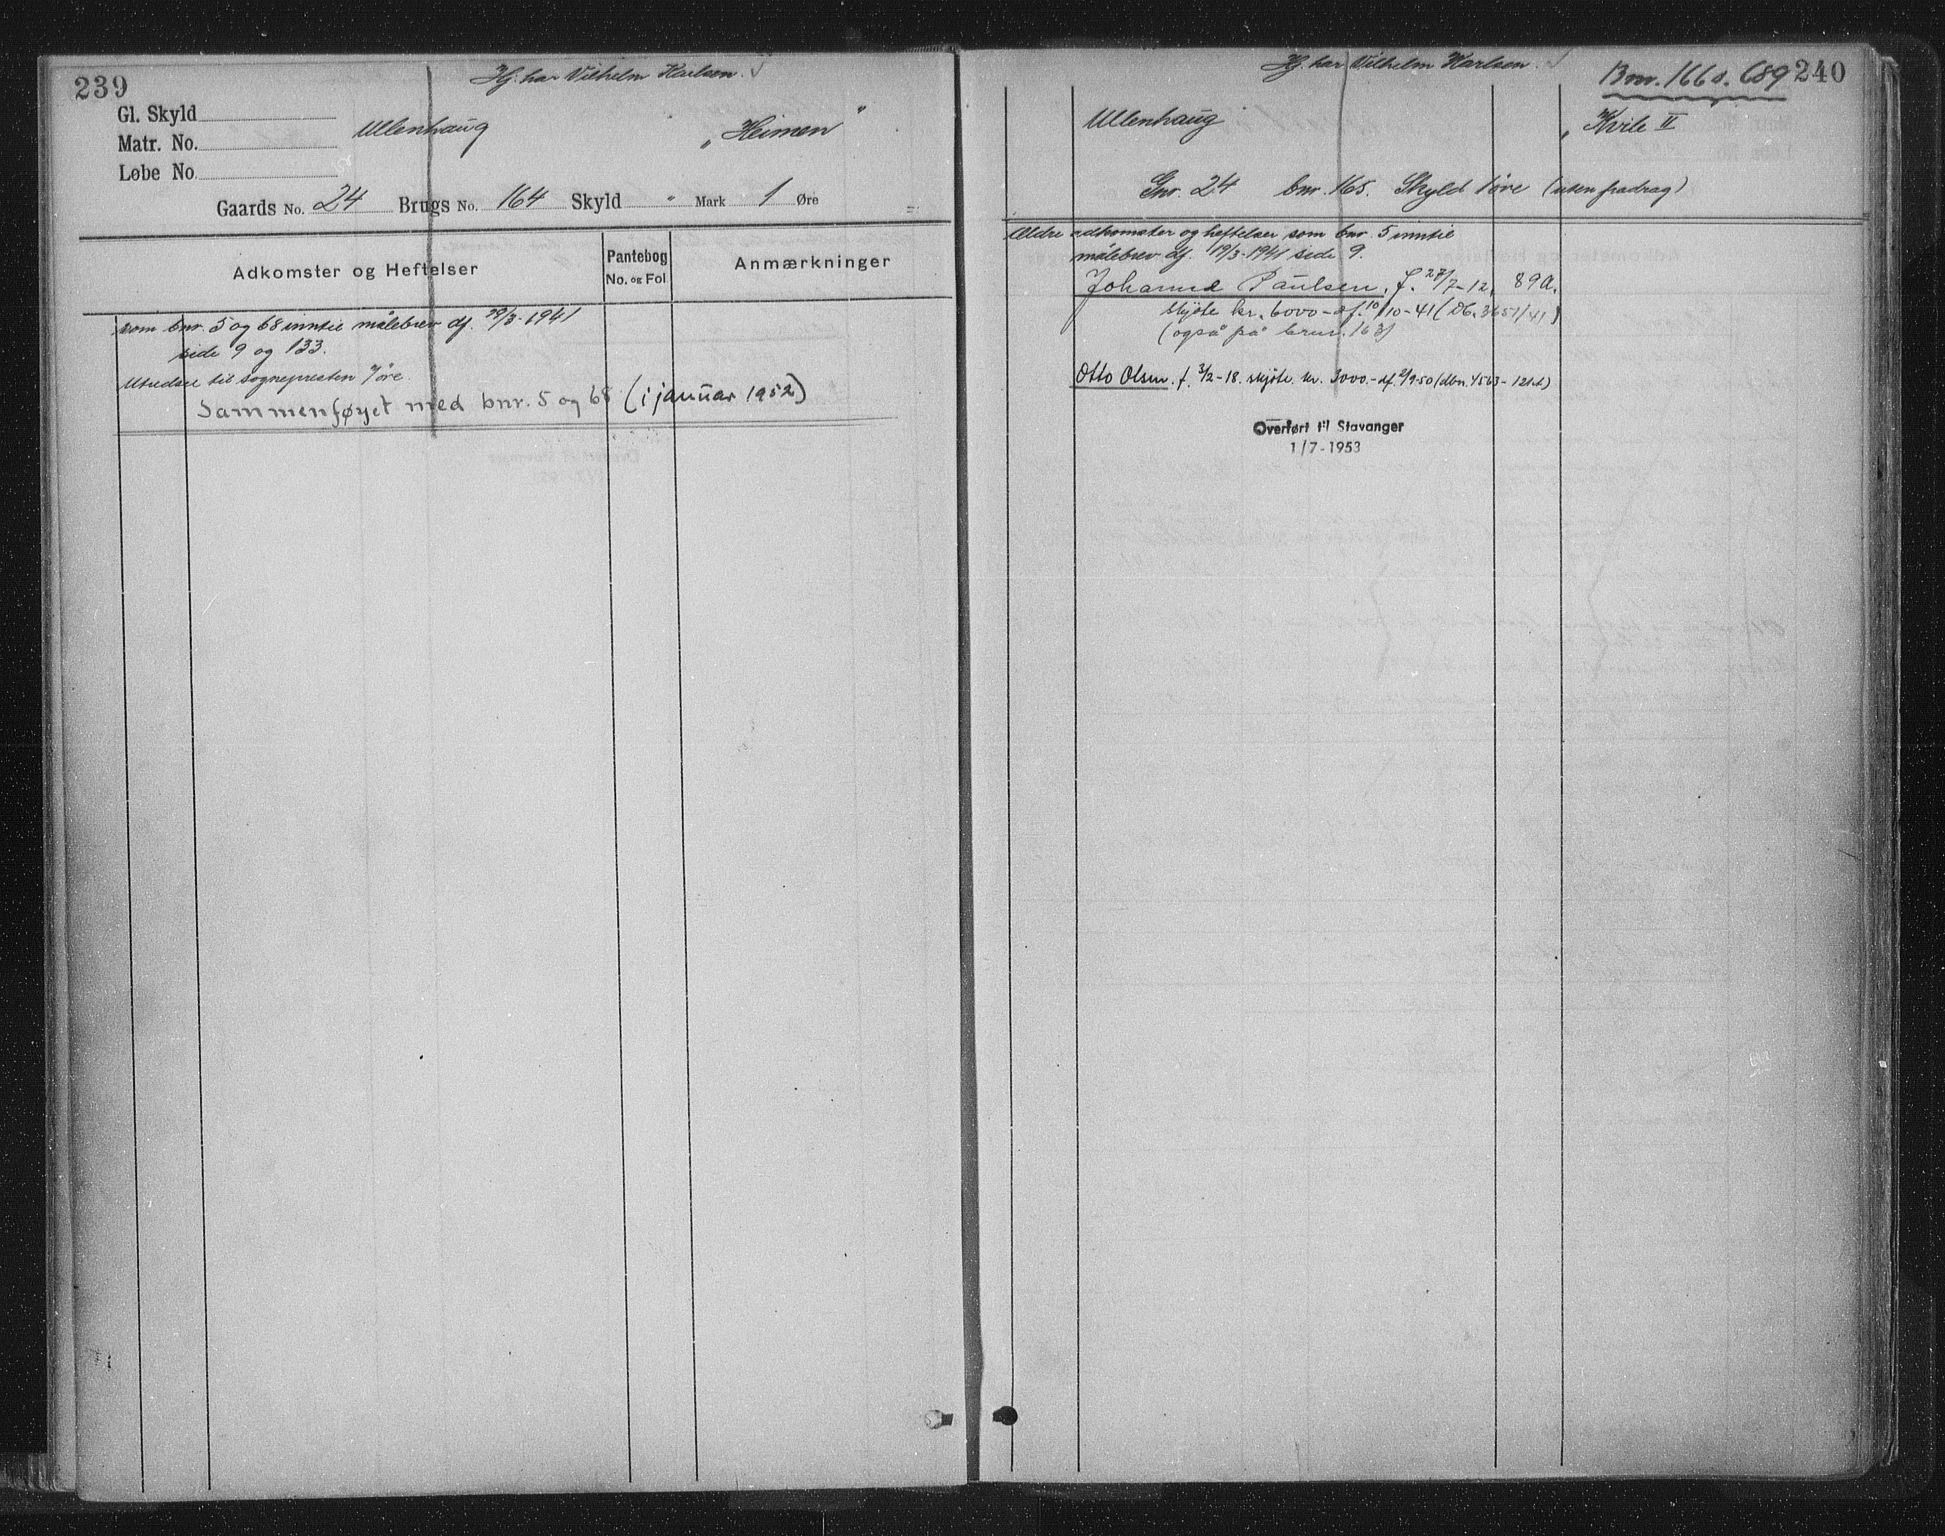 239
Hj. har Vilhelm Karlsen.
Gl. Skyld
Ullenhaug „Heimen"
Matr. No.
Løbe No
Gaards No. 24 Brugs No. 164 Skyld " Mark 1 Øre
Adkomster og Heftelser
Pantebog
No. og Fol
Anmærkninger
som bnr. 5 og 68 inntil målebrev df. 19/3-1941
side 9 og 133.
Utredsel til sognepresten 7 øre.
Sammenføyet med bnr. 5 og 68 (i januar 1952)
Hj. har Vilhelm Karlsen.
Bnr. 166 s. 689
240
Ullenhaug „Kvile II
Gnr. 24 bnr. 165. Skyld 1 øre (uten fradrag)
Ældre adkomster og heftelser som bnr. 5 inntil
målebrev df. 19/3-1941 side 9.
Johannes Paulsen, f. 27/7-12, 89a.
skjøte kr. 6000- df. 10/10-41 (Db. 3651/41)
(også på bnr. 163)
Otto Olsen. f. 3/2-18. skjøte kr. 3000.- df. 2/9-50 (dbn. 4563-
Overført til Stavanger
1/7-1953